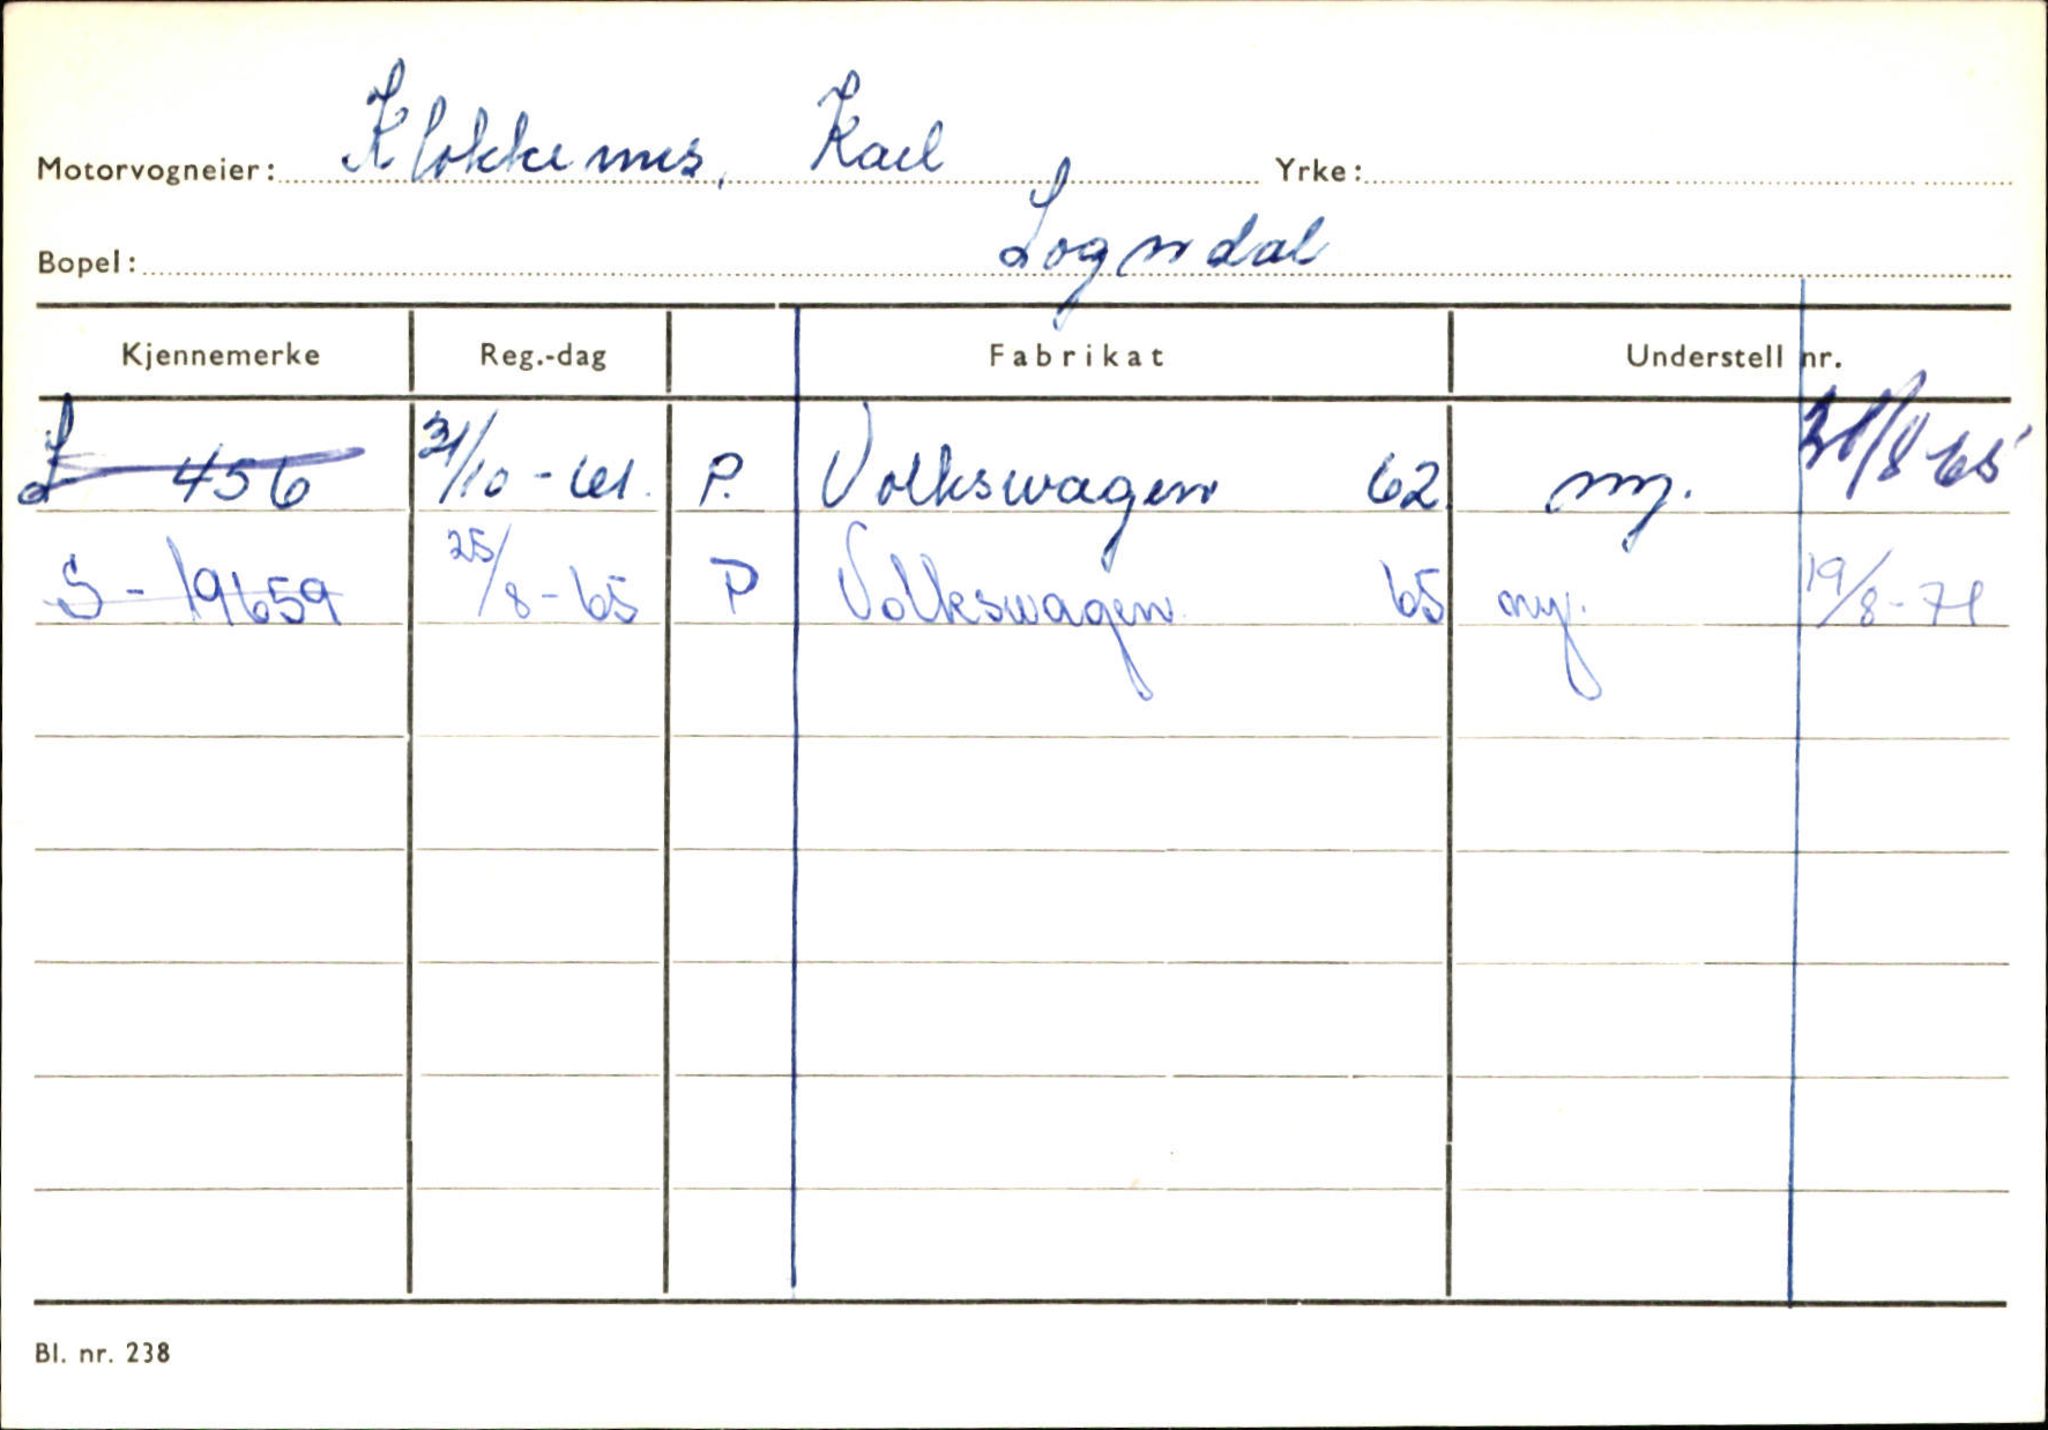 Motorvogneier: Klokkernes, Karl Yrke:
Bopel: Sogndal
Kjennemerke Reg.-dag Fabrikat Understell nr.
S 456 31/10-61. P. Volkswagen 62 ny. 31/8 65
S-19659 25/8-65 P Volkswagen 65 ny. 19/8-71
Bl. nr. 238